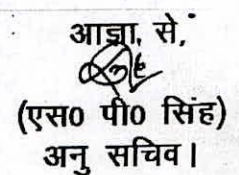 आज्ञा, से,
(एस0 पी0 सिंह)
अनु सचिव।